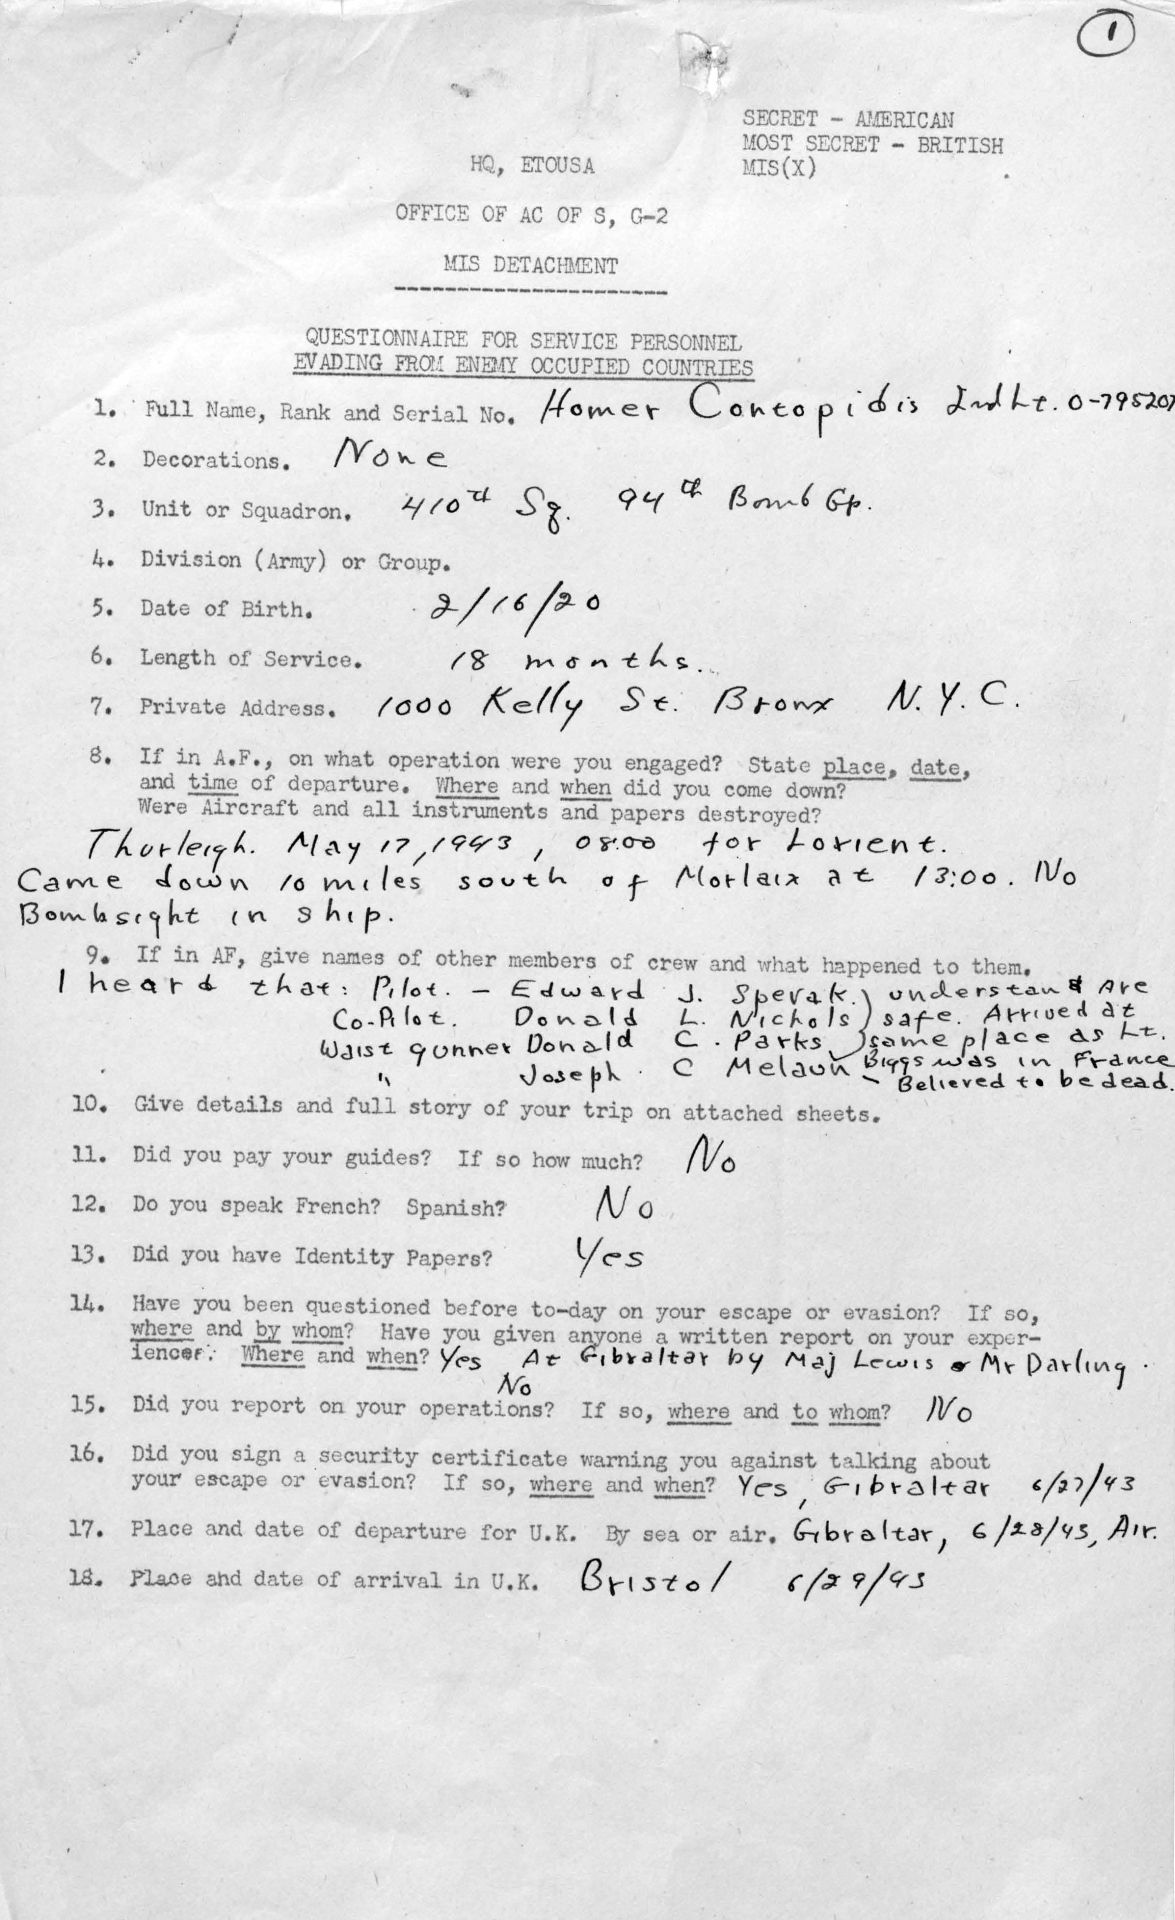 1
SECRET - AMERICAN
MOST SECRET - BRITISH
MIS(X)
HQ, ETOUSA
OFFICE OF AC OF S, G-2
MIS DETACHMENT
QUESTIONNAIRE FOR SERVICE PERSONNEL
EVADING FROM ENEMY OCCUPIED COUNTRIES
1. Full Name, Rank and Serial No. Homer Contopidis 2nd Lt. O-795207
2. Decorations. None
3. Unit or Squadron. 410th Sq. 94th Bomb Gp.
4. Division (Army) or Group.
5. Date of Birth. 2/16/20
6. Length of Service. 18 months.
7. Private Address. 1000 Kelly St. Bronx N.Y.C.
8. If in A.F., on what operation were you engaged? State place, date,
and time of departure. Where and when did you come down?
Were Aircraft and all instruments and papers destroyed?
Thurleigh. May 17, 1943, 08:00 for Lorient.
Came down 10 miles south of Morlaix at 13:00. No
Bombsight in ship.
9. If in AF, give names of other members of crew and what happened to them.
I heard that: Pilot. - Edward J. Spevak.) understand Are
Co-Pilot. Donald L. Nichols) safe. Arrived at
Waist gunner Donald C. Parks )same place as Lt.
" Joseph C Melaun Biggs was in France
- Believed to be dead.
10. Give details and full story of your trip on attached sheets.
11. Did you pay your guides? If so how much? No
12. Do you speak French? Spanish? No
13. Did you have Identity Papers? Yes
14. Have you been questioned before to-day on your escape or evasion? If so,
where and by whom? Have you given anyone a written report on your exper-
iences. Where and when? Yes At Gibraltar by Maj Lewis & Mr Darling.
No
15. Did you report on your operations? If so, where and to whom? No
16. Did you sign a security certificate warning you against talking about
your escape or evasion? If so, where and when? Yes, Gibraltar 6/27/43
17. Place and date of departure for U.K. By sea or air. Gibraltar, 6/28/43, Air.
18. Place and date of arrival in U.K. Bristol 6/29/43